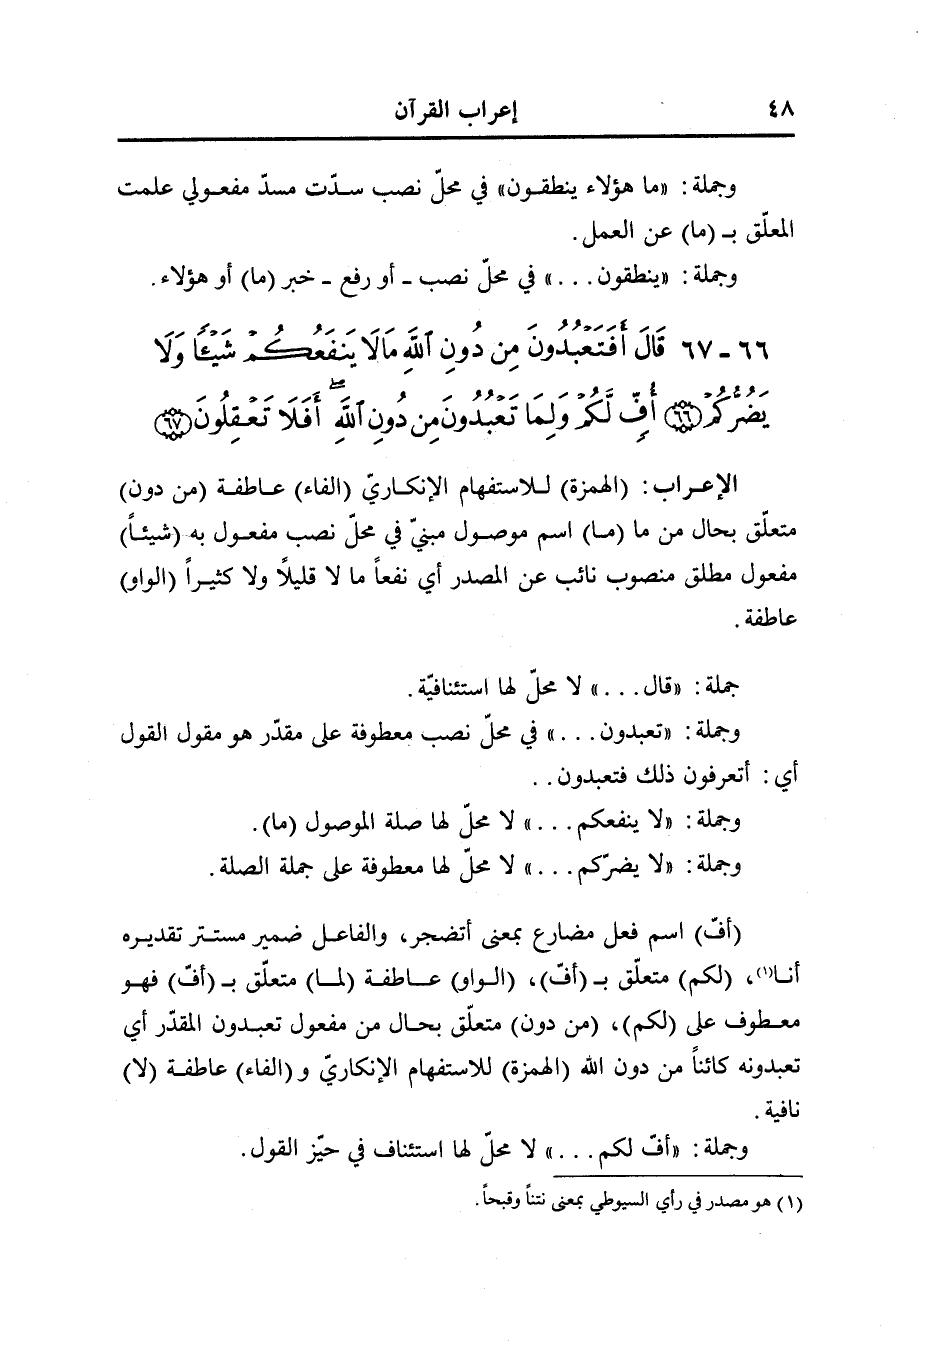 ٤٨ إعراب القرآن
وجملة: «ما هؤلاء ينطقون» في محلّ نصب سدّت مسدّ مفعولي علمت
المعلّق بـ (ما) عن العمل.
وجملة: «ينطقون...» في محلّ نصب ـ أو رفع ـ خبر (ما) أو هؤلاء.
٦٦ ـ ٦٧ قَالَ أَفَتَعْبُدُونَ مِن دُونِ ٱللَّهِ مَا لَا يَنفَعُكُمْ شَيْـًٔا وَلَا
يَضُرُّكُمْ ﴿٦٦﴾ أُفٍّ لَّكُمْ وَلِمَا تَعْبُدُونَ مِن دُونِ ٱللَّهِ ۖ أَفَلَا تَعْقِلُونَ ﴿٦٧﴾
الإعراب: (الهمزة) للاستفهام الإنكاريّ (الفاء) عاطفة (من دون)
متعلّق بحال من ما (ما) اسم موصول مبنيّ في محلّ نصب مفعول به (شيئاً)
مفعول مطلق منصوب نائب عن المصدر أي نفعاً ما لا قليلاً ولا كثيراً (الواو)
عاطفة.
جملة: «قال...» لا محلّ لها استئنافيّة.
وجملة: «تعبدون...» في محلّ نصب معطوفة على مقدّر هو مقول القول
أي: أتعرفون ذلك فتعبدون..
وجملة: «لا ينفعكم...» لا محلّ لها صلة الموصول (ما).
وجملة: «لا يضرّكم...» لا محلّ لها معطوفة على جملة الصلة.
(أفّ) اسم فعل مضارع بمعنى أتضجر، والفاعل ضمير مستتر تقديره
أنا(١)، (لكم) متعلّق بـ (أفّ)، (الواو) عاطفة (لما) متعلّق بـ (أفّ) فهو
معطوف على (لكم)، (من دون) متعلّق بحال من مفعول تعبدون المقدّر أي
تعبدونه كائناً من دون الله (الهمزة) للاستفهام الإنكاريّ و(الفاء) عاطفة (لا)
نافية.
وجملة: «أفّ لكم...» لا محلّ لها استئناف في حيّز القول.
(١) هو مصدر في رأي السيوطي بمعنى نتناً وقبحاً.